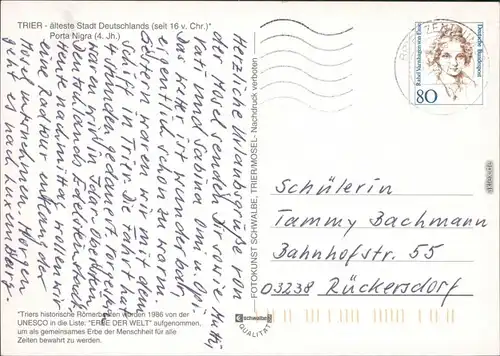 TRIER - älteste Stadt Deutschlands (seit 16 v. Chr.)*
Porta Nigra (4. Jh.)
Herzliche Urlaubsgrüße von
der Mosel senden Dir sowie Mutti,
Vati und Sabina Omi u. Opi.
Das Wetter ist wunderbar,
eigentlich schon zu warm.
Gestern waren wir mit dem
Schiff in Trier. Die Fahrt hat
4 Stunden gedauert. Vorgestern
waren wir in Idar-Oberstein,
Deutschlands Edelsteinstadt.
Heute nachmittag wollen wir
eine Radtour entlang der
Mosel unternehmen. Morgen
geht es nach Luxemburg.
*Triers historische Römerbauten wurden 1986 von der
UNESCO in die Liste: "ERBE DER WELT" aufgenommen,
um als gemeinsames Erbe der Menschheit für alle
Zeiten bewahrt zu werden.
FOTOKUNST SCHWALBE, TRIER/MOSEL - Nachdruck verboten
schwalbe
QUALITÄT
Deutsche Bundespost
Rahel Varnhagen von Ense
80
Schülerin
Tammy Bachmann
Bahnhofstr. 55
03238 Rückersdorf